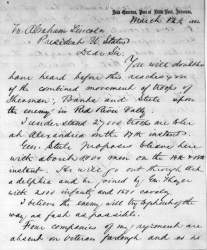 Head Quarters, Post of
March 12th
To Abraham Lincoln
President U States
Dear Sir
You will doubtless
have heard before this reaches you
of the combined movement of troops of
Sherman, Banks and Steele upon
the enemy in Red River Vally
I understand 27000 troops are to be
at Alexandria on the 17th instant.
Genl Steele proposes to leave here
with about 8000 men on the
instant. He will go out through Ark
adelphia and be joined by Gn Thayer
with 4000 infantry and 1500 cavalry
I believe the enemy will try to get out of the
way as fast as possible.
Four companies of my regiment are
absent on veteran furlough and as no